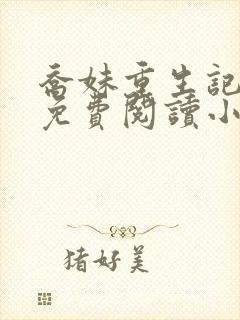 喬妹重生記
免費閱讀小
猪好美